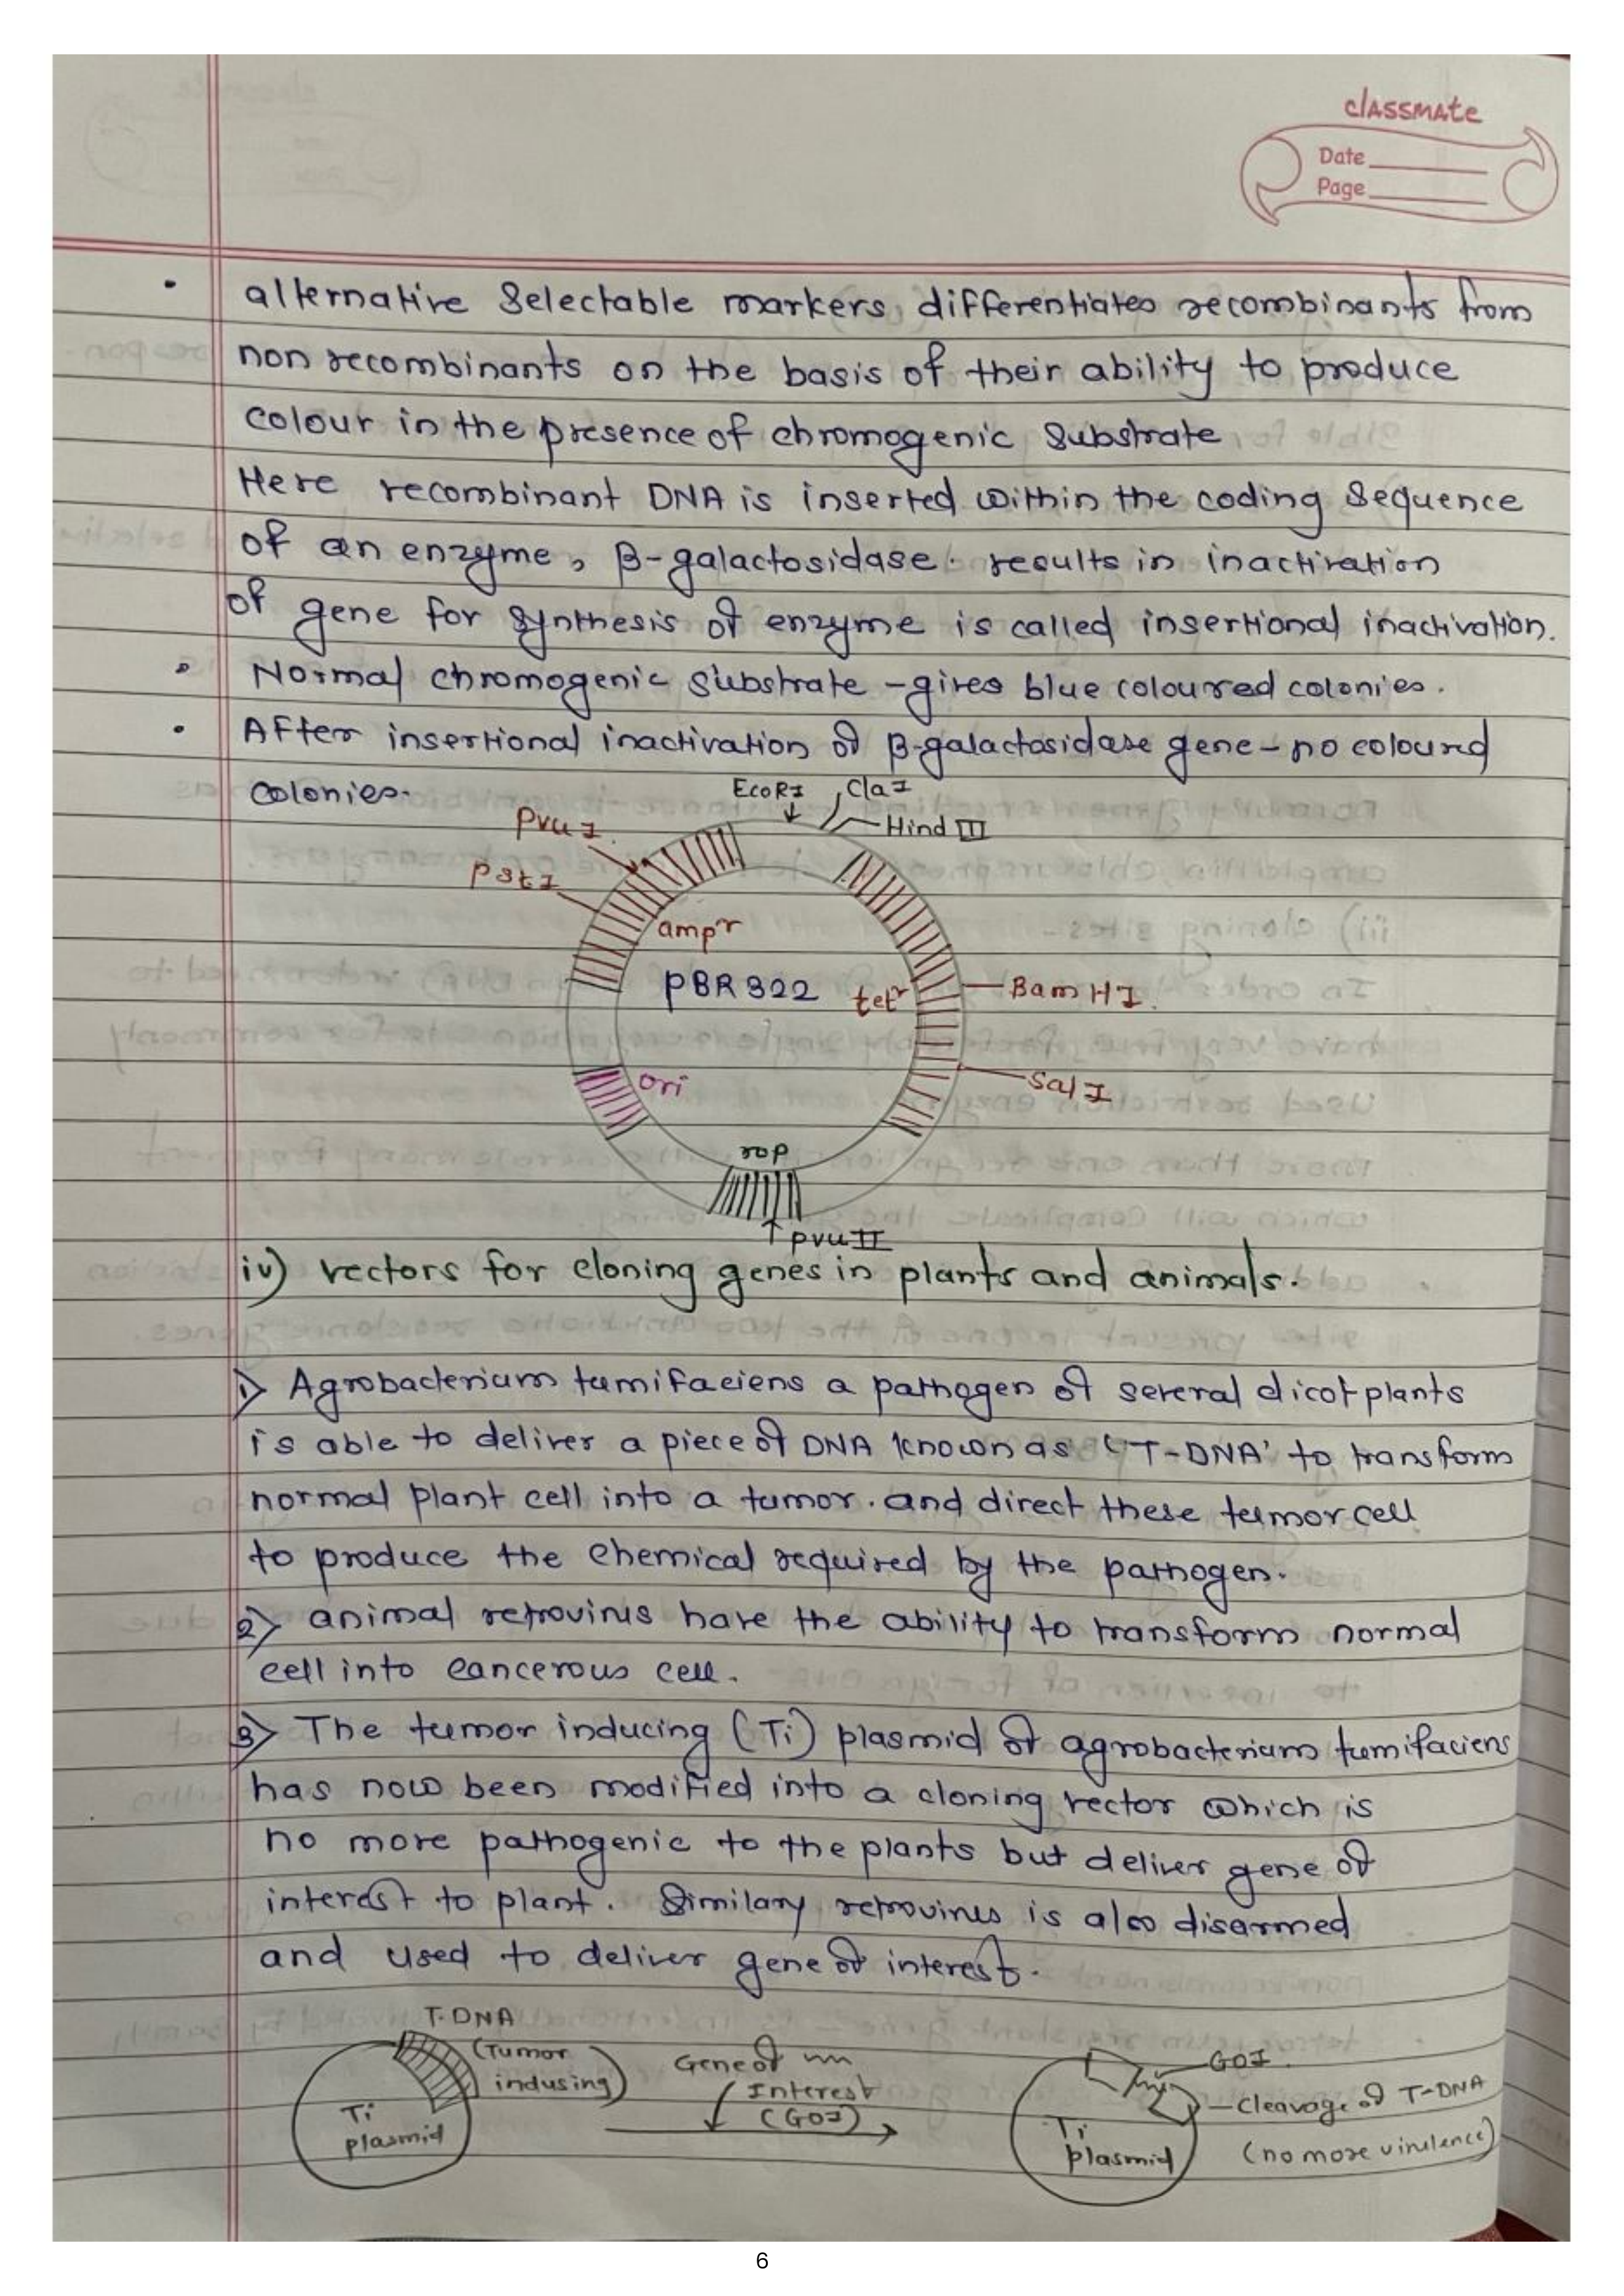 classmate
Date
Page
• alternative Selectable markers, differentiates recombinants from
non recombinants on the basis of their ability to produce
colour in the presence of chromogenic Substrate
Here recombinant DNA is inserted within the coding Sequence
of an enzyme, β-galactosidase. results in inactivation
of gene for synthesis of enzyme is called insertional inactivation.
• Normal chromogenic substrate - gives blue coloured colonies.
• After insertional inactivation of β-galactosidase gene - no coloured
colonies.
EcoRI ClaI
Hind III
PvuI
PstI
ampr
pBR322
tetr
BamHI
SalI
ori
rop
pvuII
iv) vectors for cloning genes in plants and animals.
1) Agrobacterium tumifaciens a pathogen of several dicot plants
is able to deliver a piece of DNA known as 'T-DNA' to transform
normal plant cell into a tumor. and direct these tumor cell
to produce the chemical required by the pathogen.
2) animal retrovirus have the ability to transform normal
cell into cancerous cell.
3) The tumor inducing (Ti) plasmid of agrobacterium tumifaciens
has now been modified into a cloning vector which is
no more pathogenic to the plants but deliver gene of
interest to plant. Similary retrovirus is also disarmed
and used to deliver gene of interest.
T-DNA
(Tumor
indusing)
Ti
plasmid
Gene of
Interest
(GOI)
GOI
Cleavage of T-DNA
(no more virulence)
Ti
plasmid
6